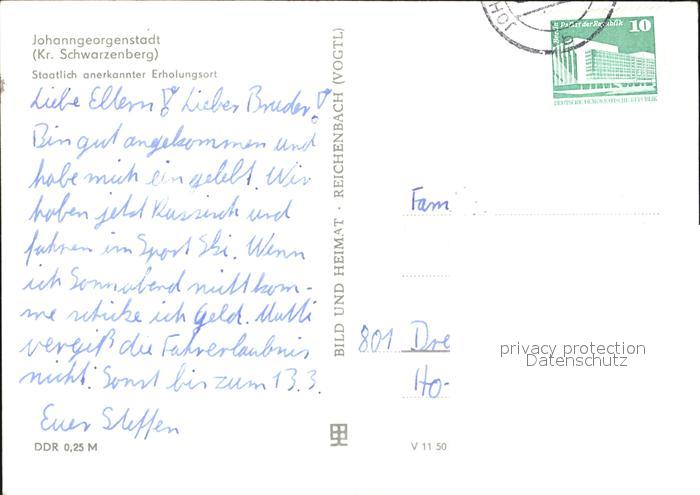 Johanngeorgenstadt
(Kr. Schwarzenberg)
Staatlich anerkannter Erholungsort
Liebe Eltern! Lieber Bruder!
Bin gut angekommen und
habe mich eingelebt. Wir
haben jetzt Russisch und
fahren im Sport Ski. Wenn
ich Sonnabend nicht kom-
me schicke ich Geld. Mutti
vergiß die Fahrerlaubnis
nicht. Sonst bis zum 13.3.
Euer Steffen
DDR 0,25 M
BILD UND HEIMAT · REICHENBACH (VOGTL)
V 11 50
JOH
Berlin Palast der Republik 10
DEUTSCHE DEMOKRATISCHE REPUBLIK
Fam
801 Dre
Ho-
privacy protection
Datenschutz